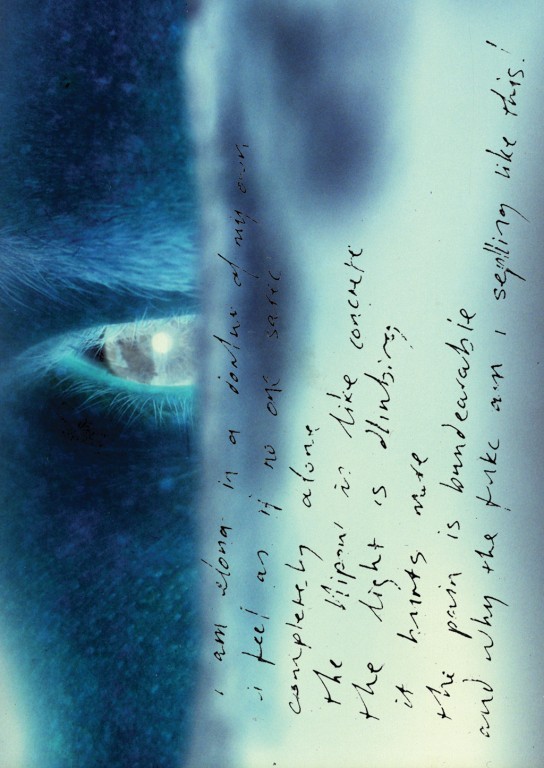 i am along in a of my own
i feel as if no one
completeby alone
the is like concrete
the light is dlinbing
it hurnts more
the pain is bundearable
and why the fukc am i seplling like this!